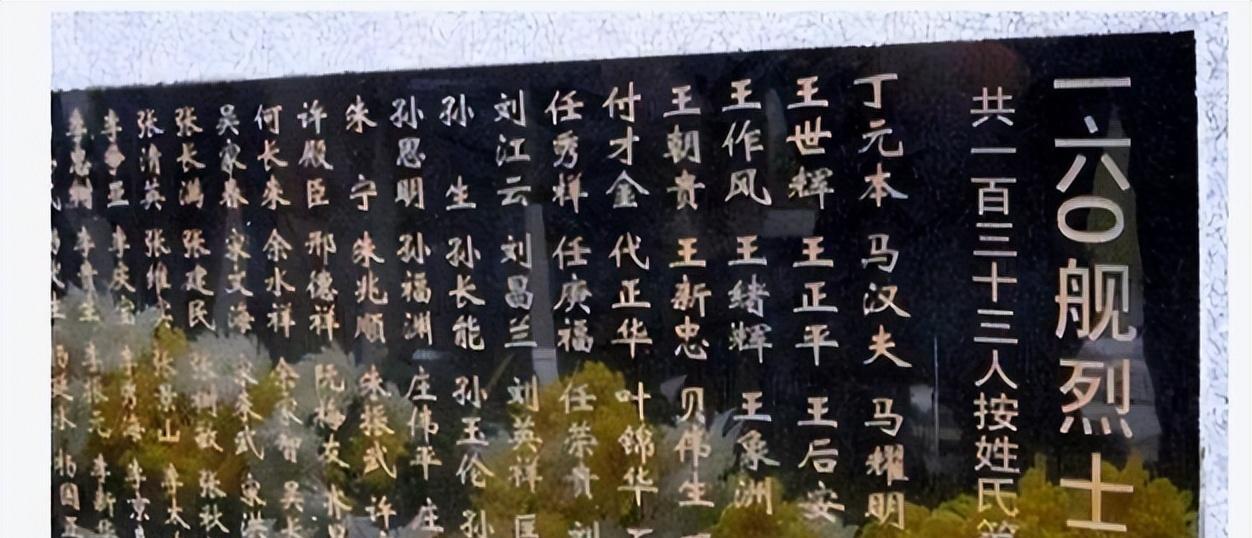 一六〇舰烈士
共一百三十三人按姓氏
丁元本 马汉夫 马耀明
王世辉 王正平 王后安
王作风 王绪辉 王象洲
王朝贵 王新忠 贝伟生
付才金 代正华 叶锦华
任秀祥 任庚福 任荣贵 刘
刘江云 刘昌兰 刘英祥 匡
孙生 孙长能 孙玉伦 孙
孙恩明 孙福渊 庄伟平 庄
朱宁 朱兆顺 朱振武 许
许殿臣 邢德祥 阮梅友
何长来 余水祥 余永智 吴长
吴家春 宋文海 宋来武 宋洪
张长满 张建民 张树敏 张秋
张清英 张维 张景山 李太
李 李庆宝 李秀海 李京
李忠 李贵 李张元 李新
杨国